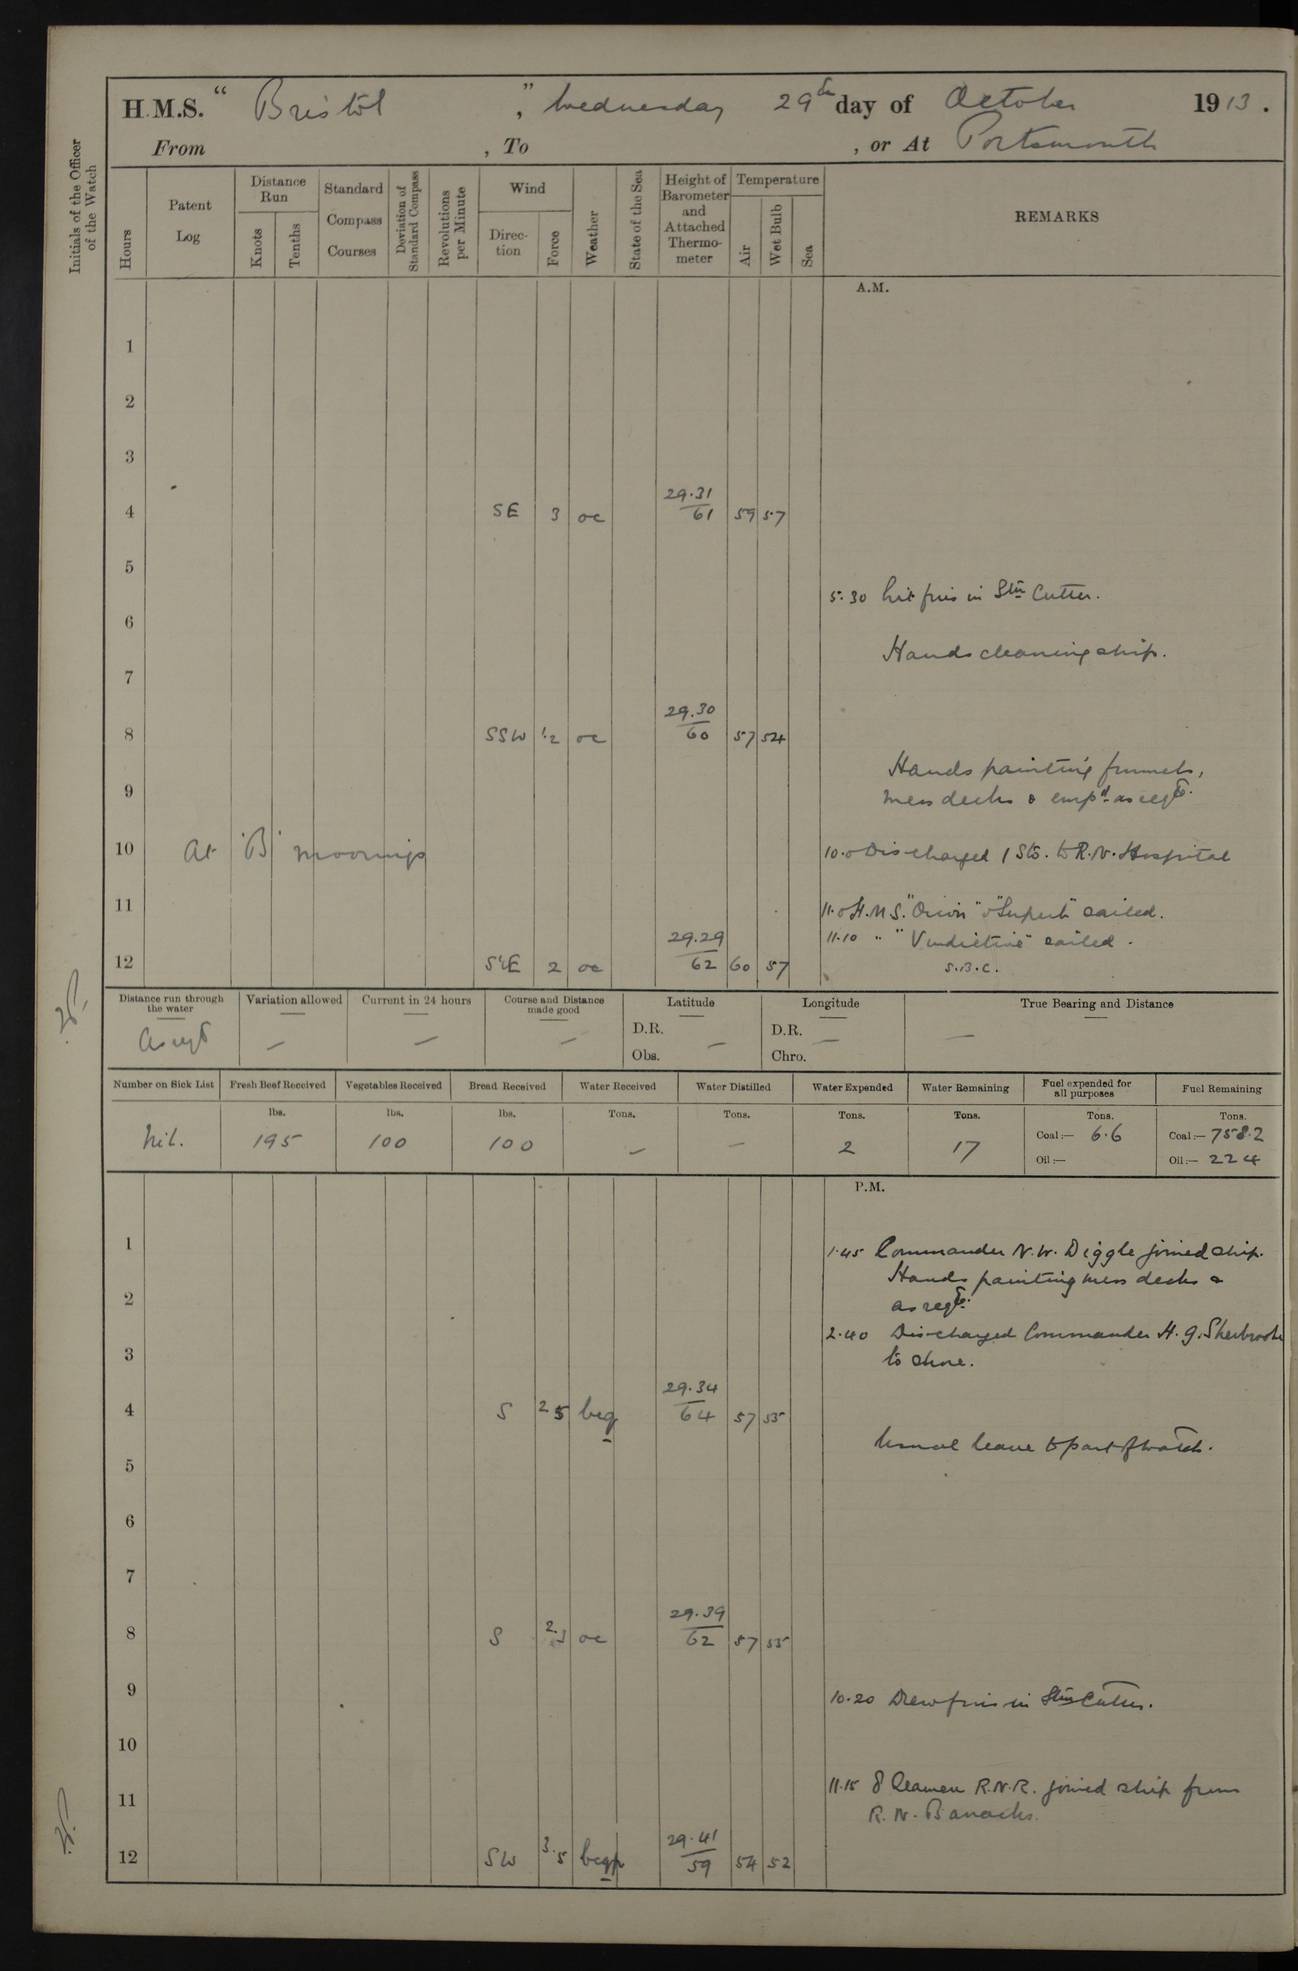 H.M.S. "Bristol", Wednesday 29th day of October 1913.
From , To , or At Portsmouth
Initials of the Officer of the Watch
Hours
Patent Log
Distance Run
Knots
Tenths
Standard Compass Courses
Deviation of Standard Compass
Revolutions per Minute
Wind
Direction
Force
Weather
State of the Sea
Height of Barometer and Attached Thermometer
Temperature
Air
Wet Bulb
Sea
REMARKS
A.M.
1
2
3
4 SE 3 oc 29.31/61 59 57
5
5.30 Lit fires in Stm Cutter.
6
Hands cleaning ship.
7
8 SSW 1.2 oc 29.30/60 57 54
Hands painting funnels,
9
mess decks & empd as reqte.
10 At 'B' moorings 10.0 Discharged 1 Sto. to R.N. Hospital
11 11.0 H.M.S. "Orion" & "Superb" sailed.
11.10 " " "Vindictive" sailed.
12 S'ly E 2 oc 29.29/62 60 57
S.B.C.
Distance run through the water
Variation allowed
Current in 24 hours
Course and Distance made good
Latitude
Longitude
True Bearing and Distance
As reqte — — — D.R. Obs. — D.R. Chro. — —
Number on Sick List
Fresh Beef Received
Vegetables Received
Bread Received
Water Received
Water Distilled
Water Expended
Water Remaining
Fuel expended for all purposes
Fuel Remaining
lbs. lbs. lbs. Tons. Tons. Tons. Tons. Tons. Tons.
Nil. 195 100 100 — — 2 17 Coal:— 6.6 Coal:— 758.2
Oil:— Oil:— 224
P.M.
1 1.45 Commander N.W. Diggle joined ship.
Hands painting mess decks &
2 as reqte.
2.40 Discharged Commander H.G. Sherbrooke
3 to shore.
4 S 2.5 bcq 29.34/64 57 55
Usual leave to part of watch.
5
6
7
8 S 2.3 oc 29.39/62 57 55
9 10.20 Drew fires in Stm Cutter.
10
11.15 8 Seamen R.N.R. joined ship from
11 R.N. Barracks.
12 SW 3.5 bcqp 29.41/59 54 52